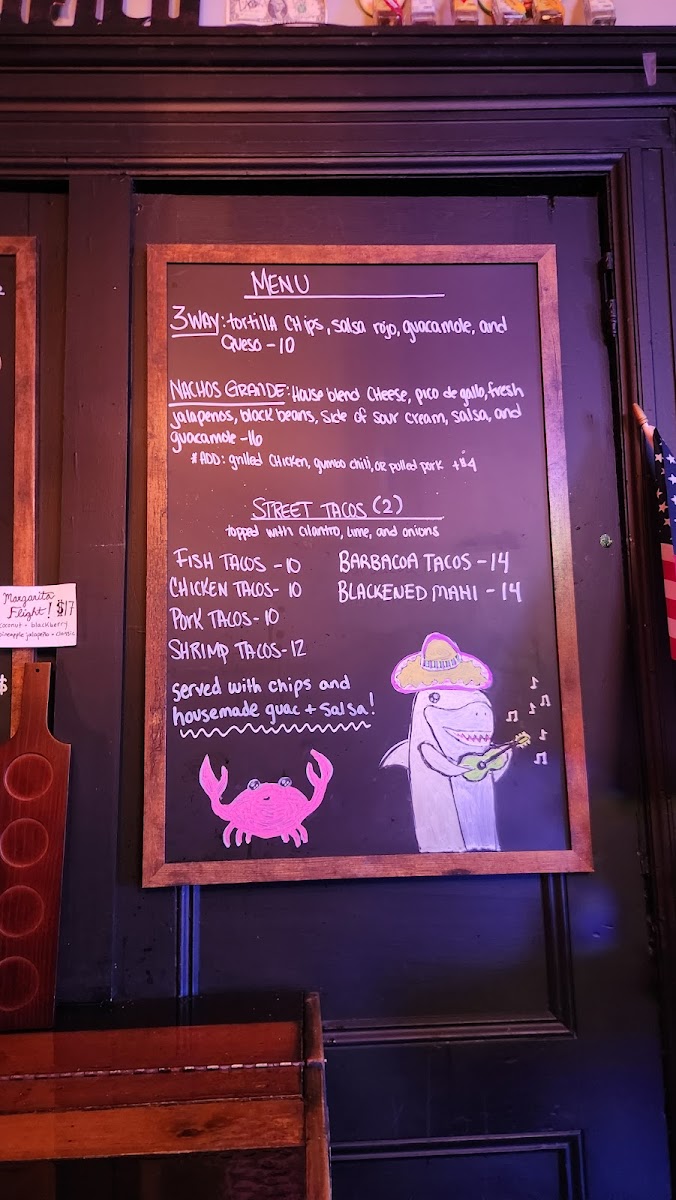 MENU
3WAY: tortilla chips, salsa rojo, guacamole, and
Queso - 10
NACHOS GRANDE: House blend cheese, pico de gallo, fresh
jalapenos, black beans, side of sour cream, salsa, and
guacamole - 16
*ADD: grilled chicken, gumbo chili, or pulled pork +$4
STREET TACOS (2)
topped with cilantro, lime, and onions
FISH TACOS - 10
CHICKEN TACOS - 10
PORK TACOS - 10
SHRIMP TACOS - 12
BARBACOA TACOS - 14
BLACKENED MAHI - 14
served with chips and
housemade guac + salsa!
Margarita
Flight! $17
coconut + blackberry
pineapple jalapeño + classic
$